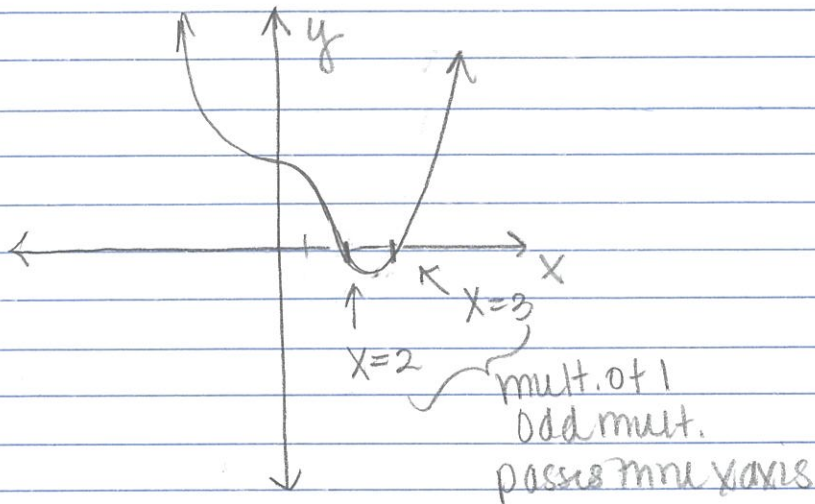 y
X
X=3
X=2
mult. of 1
odd mult.
passes thru x axis